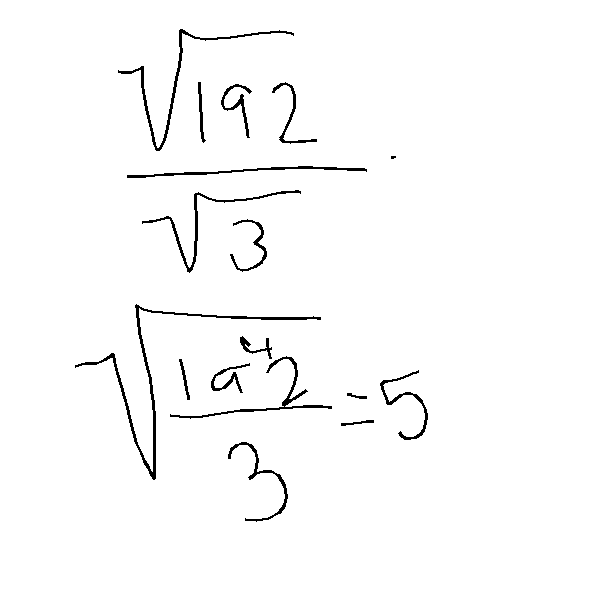 √192
√3
√(19⁴2/3) = 5